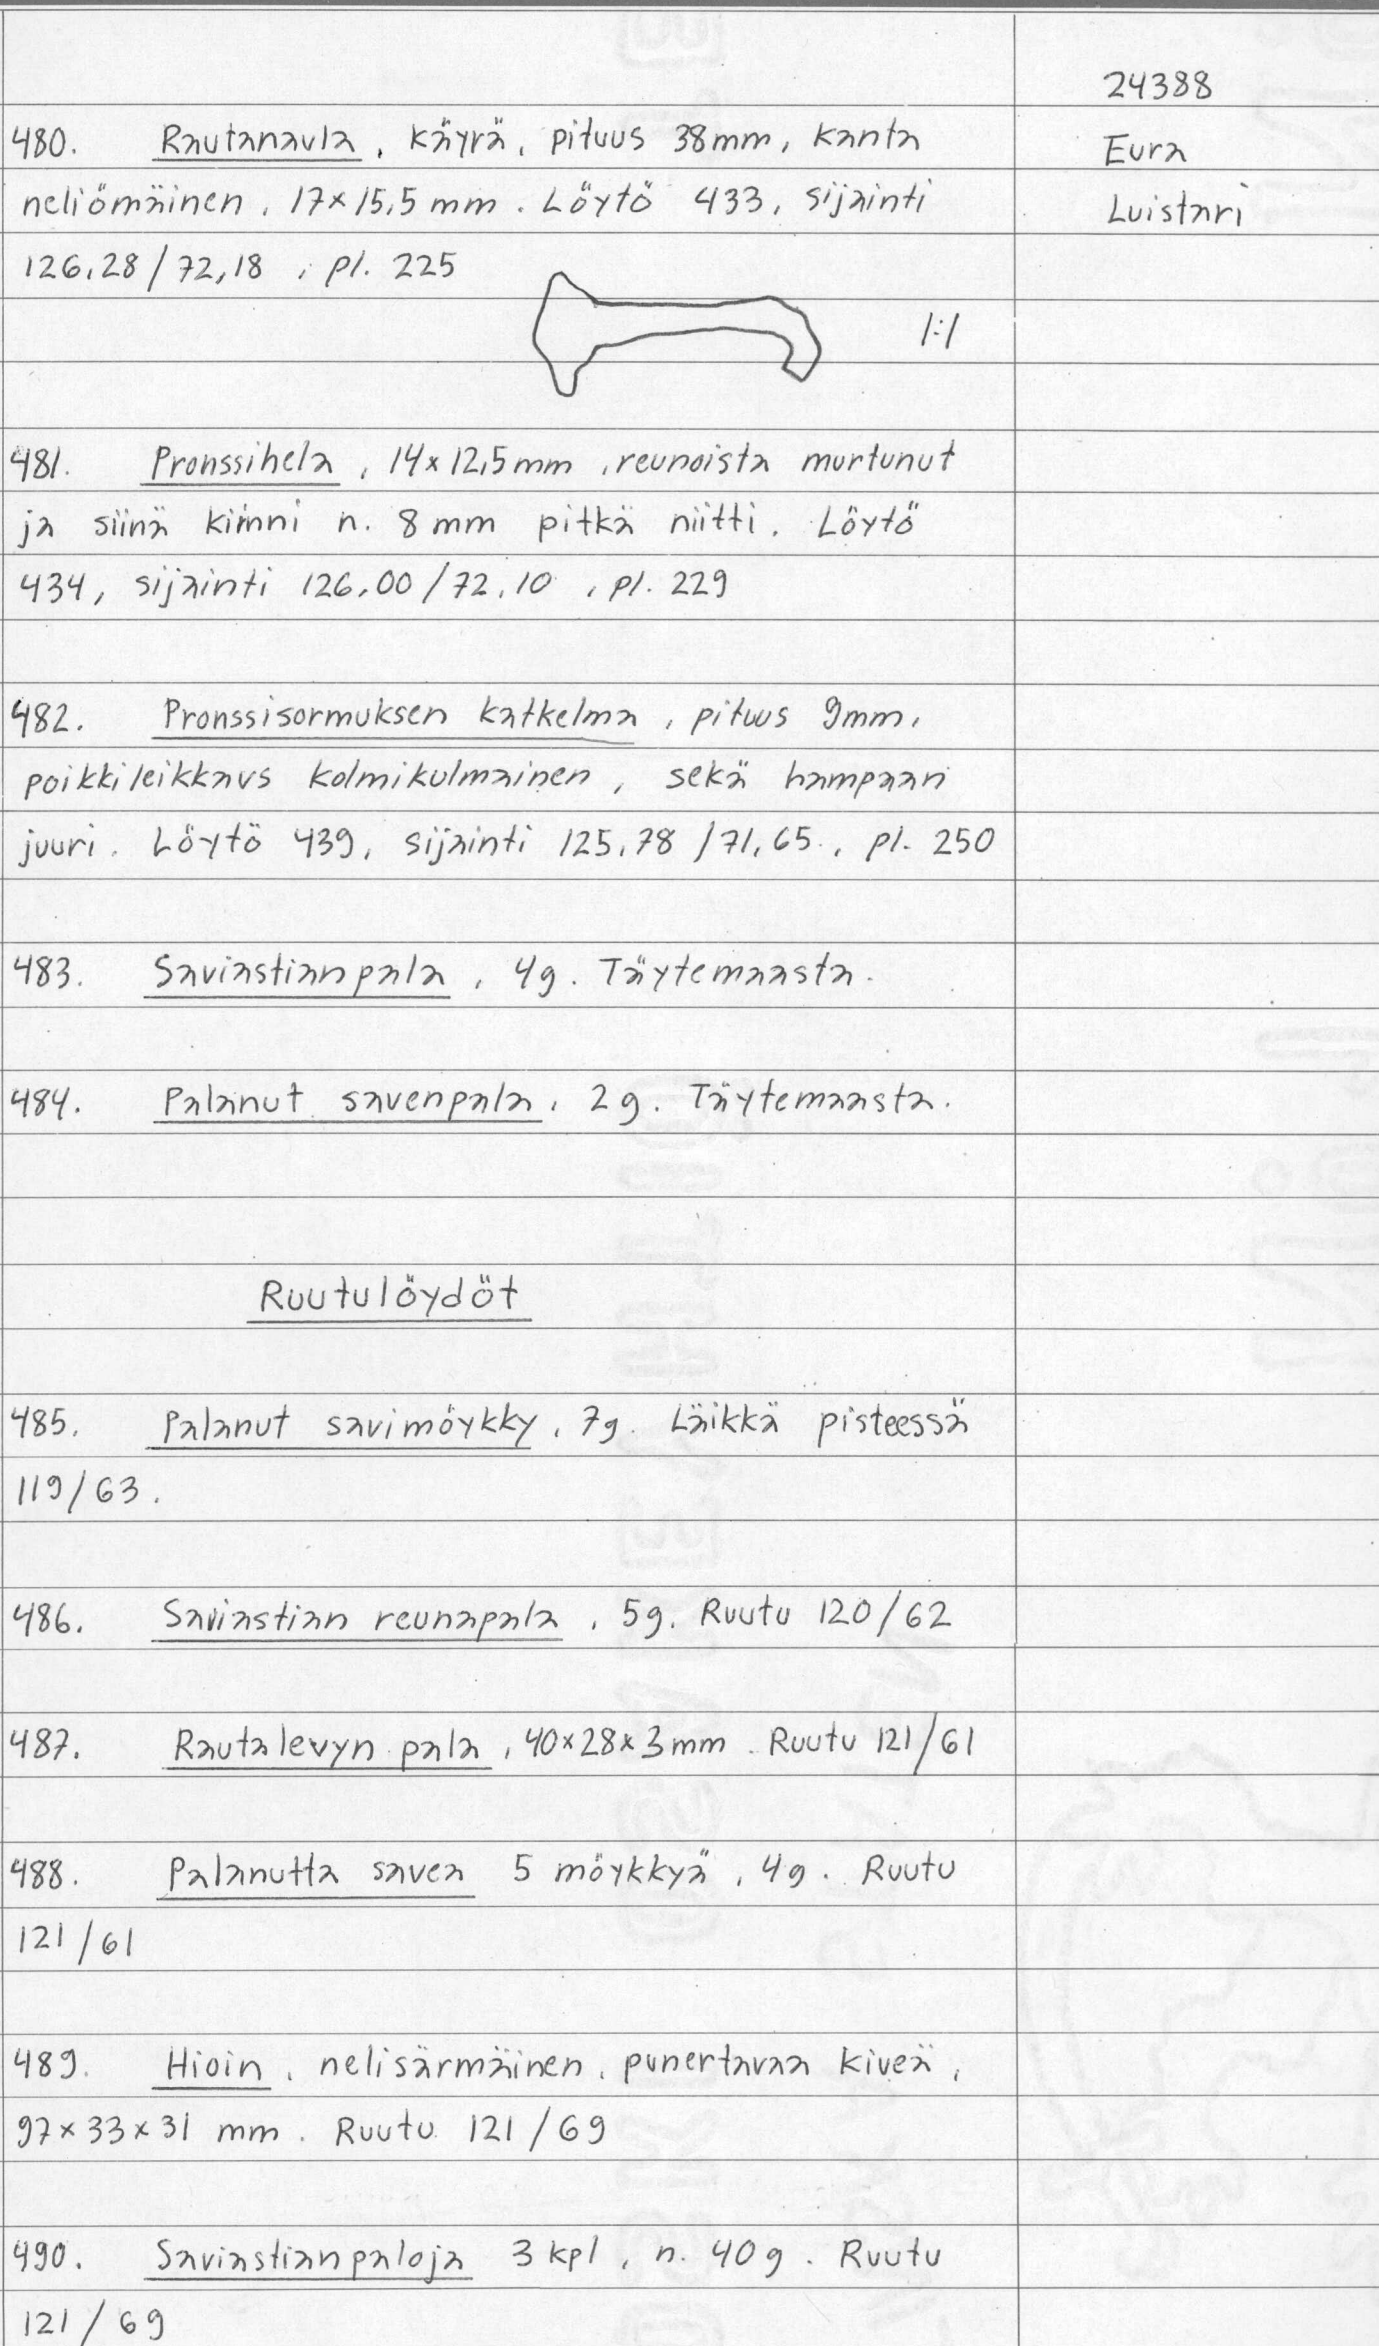 24388
Eura
Luistari
480. Rautanaula, käyrä, pituus 38mm, kanta
neliömäinen, 17×15,5 mm. Löytö 433, sijainti
126,28/72,18, pl. 225
1:1
481. Pronssihela, 14×12,5mm, reunoista murtunut
ja siinä kiinni n. 8 mm pitkä niitti. Löytö
434, sijainti 126,00/72,10, pl. 229
482. Pronssisormuksen katkelma, pituus 9mm,
poikkileikkaus kolmikulmainen, sekä hampaan
juuri. Löytö 439, sijainti 125,78/71,65, pl. 250
483. Saviastianpala, 4g. Täytemaasta.
484. Palanut savenpala, 2g. Täytemaasta.
Ruutulöydöt
485. Palanut savimöykky, 7g. Läikkä pisteessä
119/63.
486. Saviastian reunapala, 5g. Ruutu 120/62
487. Rautalevyn pala, 40×28×3mm. Ruutu 121/61
488. Palanutta savea 5 möykkyä, 4g. Ruutu
121/61
489. Hioin, nelisärmäinen, punertavaa kiveä,
97×33×31 mm. Ruutu 121/69
490. Saviastianpaloja 3 kpl, n. 40g. Ruutu
121/69